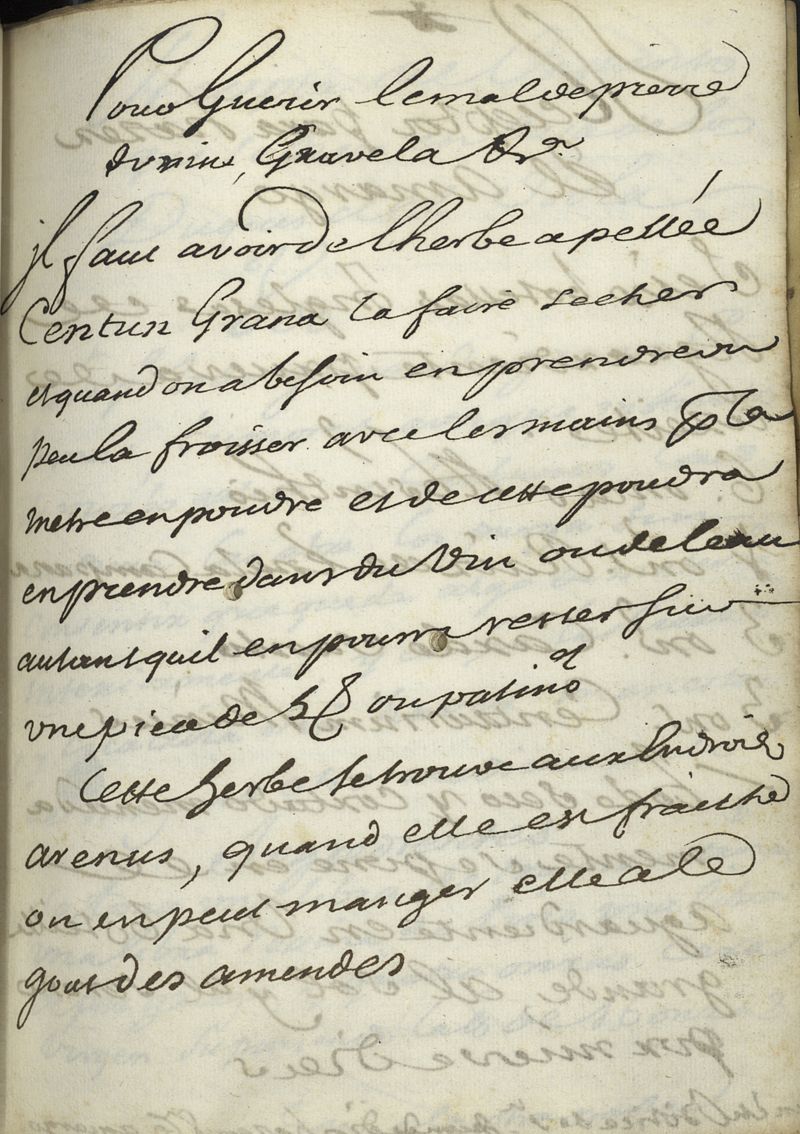 Pour Guerir lemal de pierre
durine, Gravela &ra
jl faut avoir de lherbe apellée
Centun Grana la faire secher
et quand on a besoin en prendre un
peu la froisser avec les mains pr la
metre en poudre et de cette poudra
en prendre dans du Vin ou de leau
autant quil en pourra rester sur
une piece de 5 ou patinot
Cette herbe se trouve aux Endroits
arenus, quand elle est fraiche
on en peut manger elle a le
gout des amendes